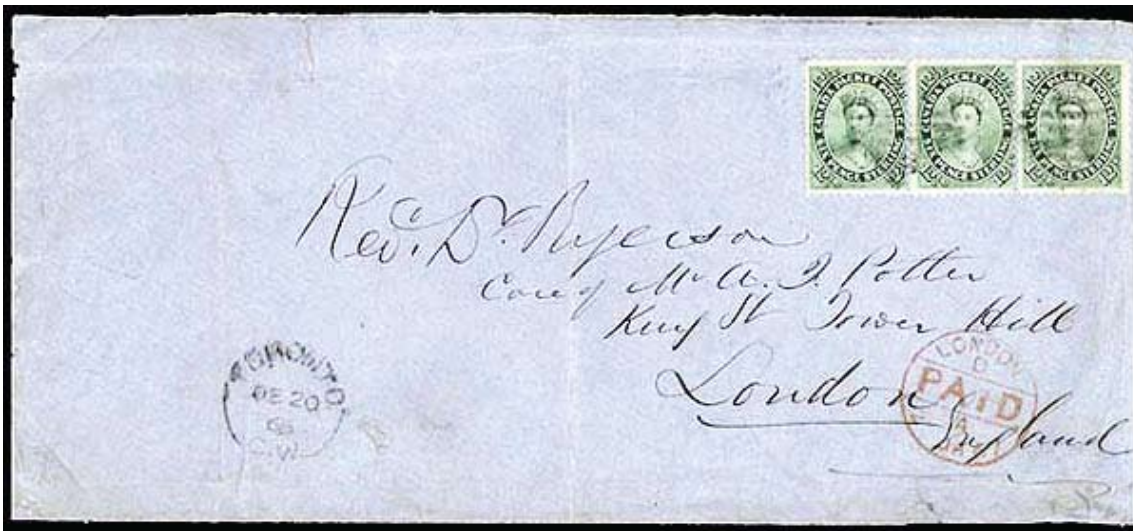 CANADA PACKET POSTAGE
SIX PENCE STERLING
CANADA PACKET POSTAGE
SIX PENCE STERLING
CANADA PACKET POSTAGE
SIX PENCE STERLING
Revd. Dr. Ryerson
Care of Mr A. J. Potter
King St Tower Hill
London
England
TORONTO
DE 20
C.W
LONDON
PAID